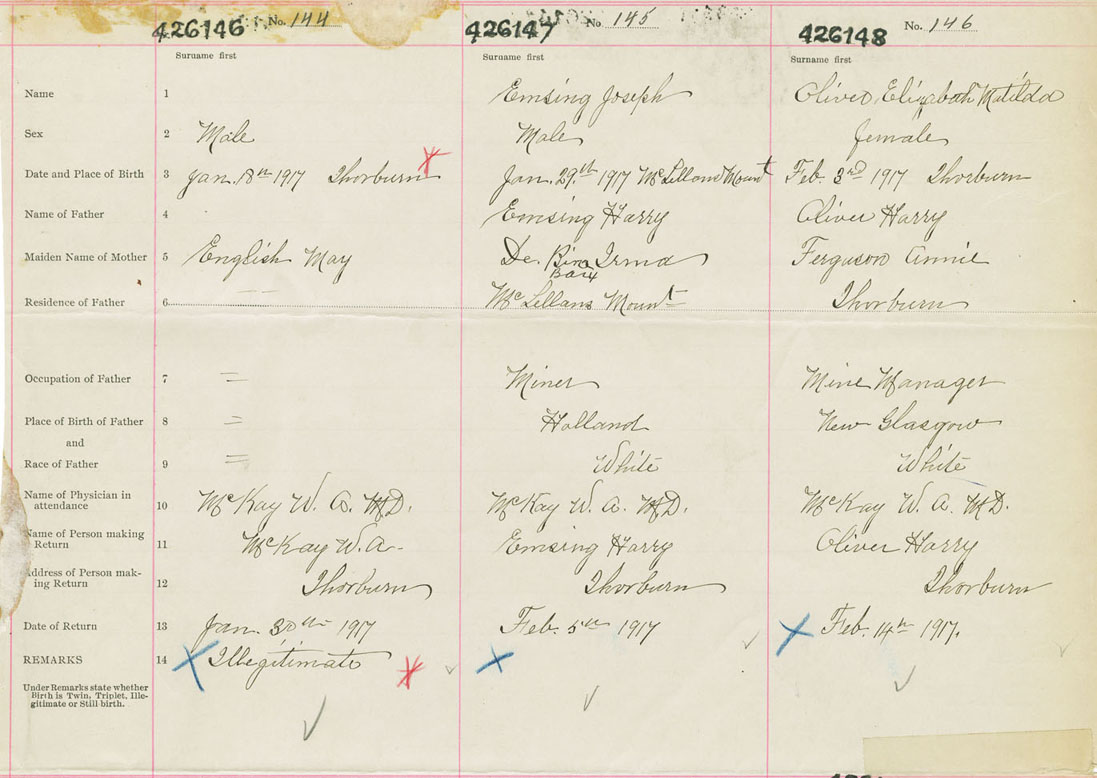 426146 No. 144 426147 No. 145 426148 No. 146
Surname first Surname first Surname first
Name 1 Emsing Joseph Oliver, Elizabeth Matilda
Sex 2 Male Male female
Date and Place of Birth 3 Jan. 18th 1917 Thorburn Jan. 29th 1917 McLellans Mount Feb. 3rd 1917 Thorburn
Name of Father 4 Emsing Harry Oliver Harry
Maiden Name of Mother 5 English May De Irma Ferguson Annie
Residence of Father 6 McLellans Mount Thorburn
Occupation of Father 7 = Miner Mine Manager
Place of Birth of Father 8 = Holland New Glasgow
and
Race of Father 9 = White White
Name of Physician in
attendance 10 McKay W. A. M.D. McKay W. A. M.D. McKay W. A. M.D.
Name of Person making
Return 11 McKay W. A. Emsing Harry Oliver Harry
Address of Person mak-
ing Return 12 Thorburn Thorburn Thorburn
Date of Return 13 Jan. 30th 1917 Feb. 5th 1917 Feb. 14th 1917.
REMARKS 14 Illegitimate
Under Remarks state whether
Birth is Twin, Triplet, Ille-
gitimate or Still-birth.